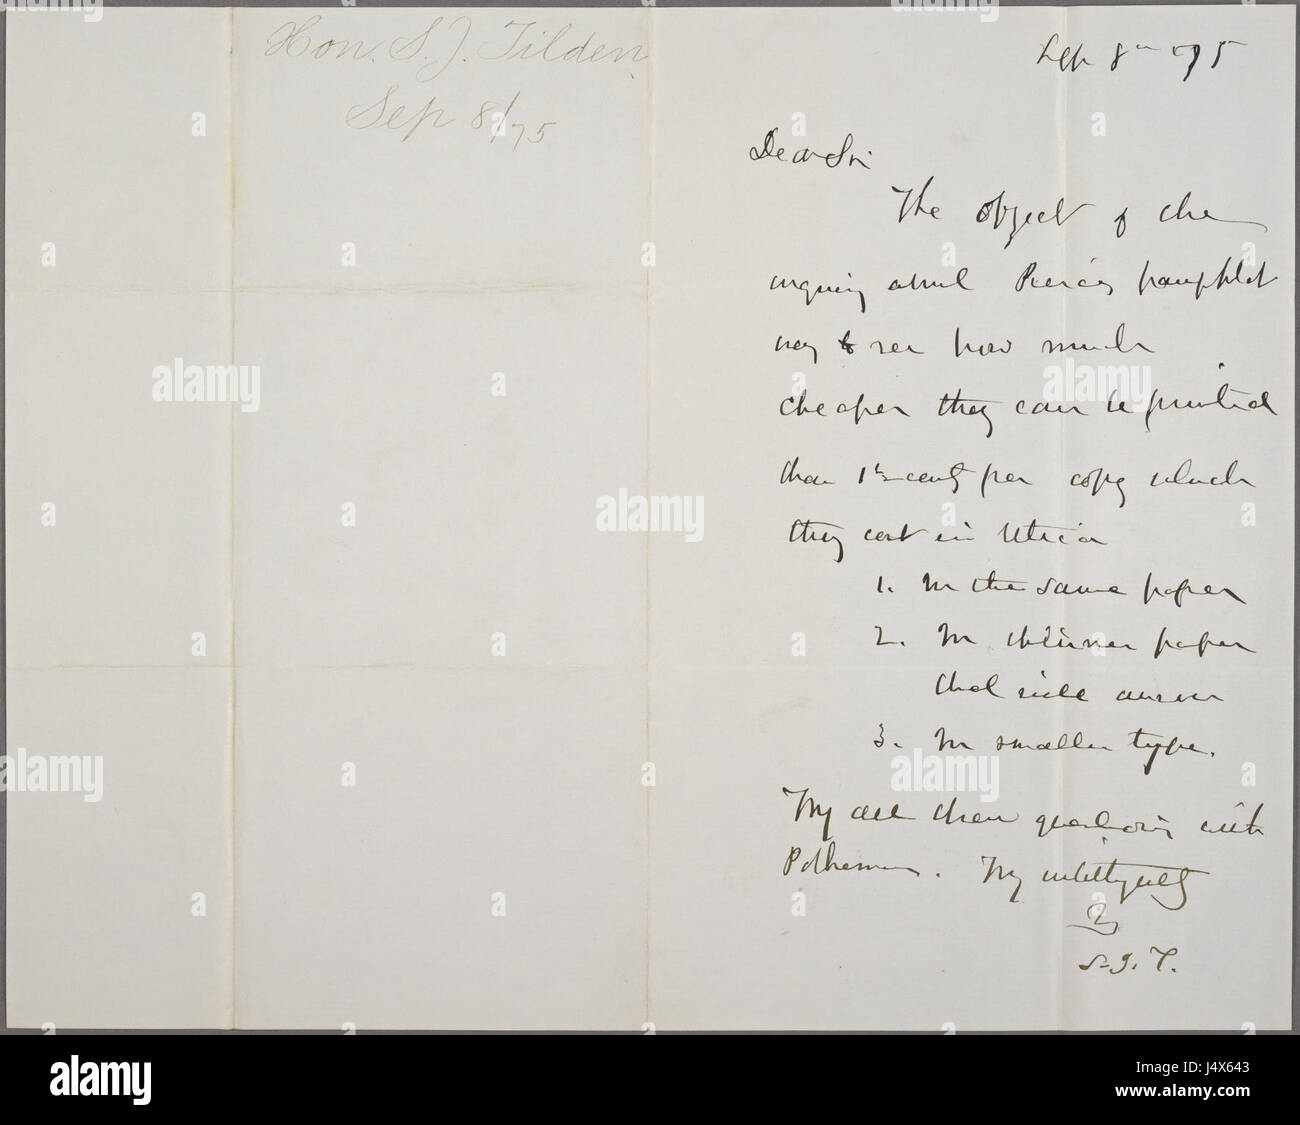 Hon. S. J. Tilden
Sep 8/75
Sep 8th 75
Dear Sir
The object of the
inquiry about Pierce's pamphlet
was to see how much
cheaper they can be printed
than 1½ cents per copy which
they cost in Utica
1. In the same paper
2. In thinner paper
that will answer
3. In smaller type.
Try all these questions with
Polhemus. Try
S. J. T.
alamy stock photo
J4X643
www.alamy.com